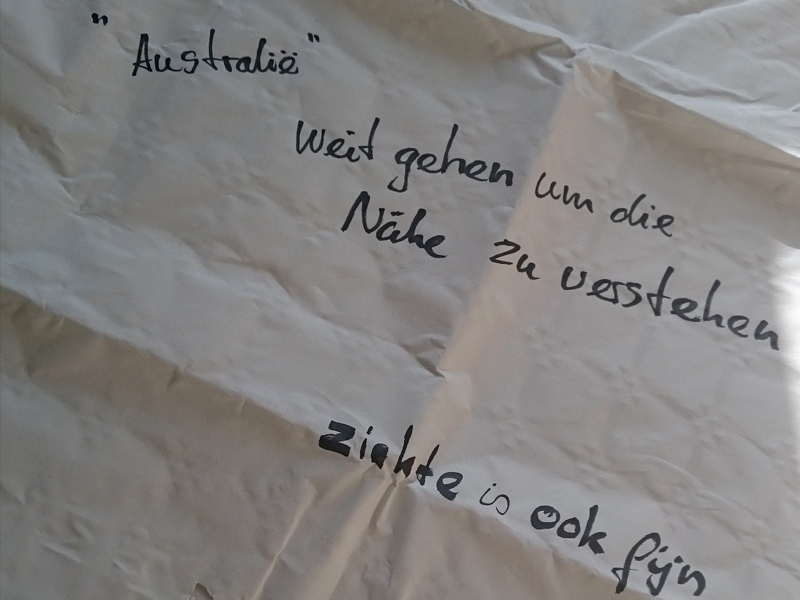 "Australië"
Weit gehen um die
Nähe zu verstehen
ziekte is ook fijn